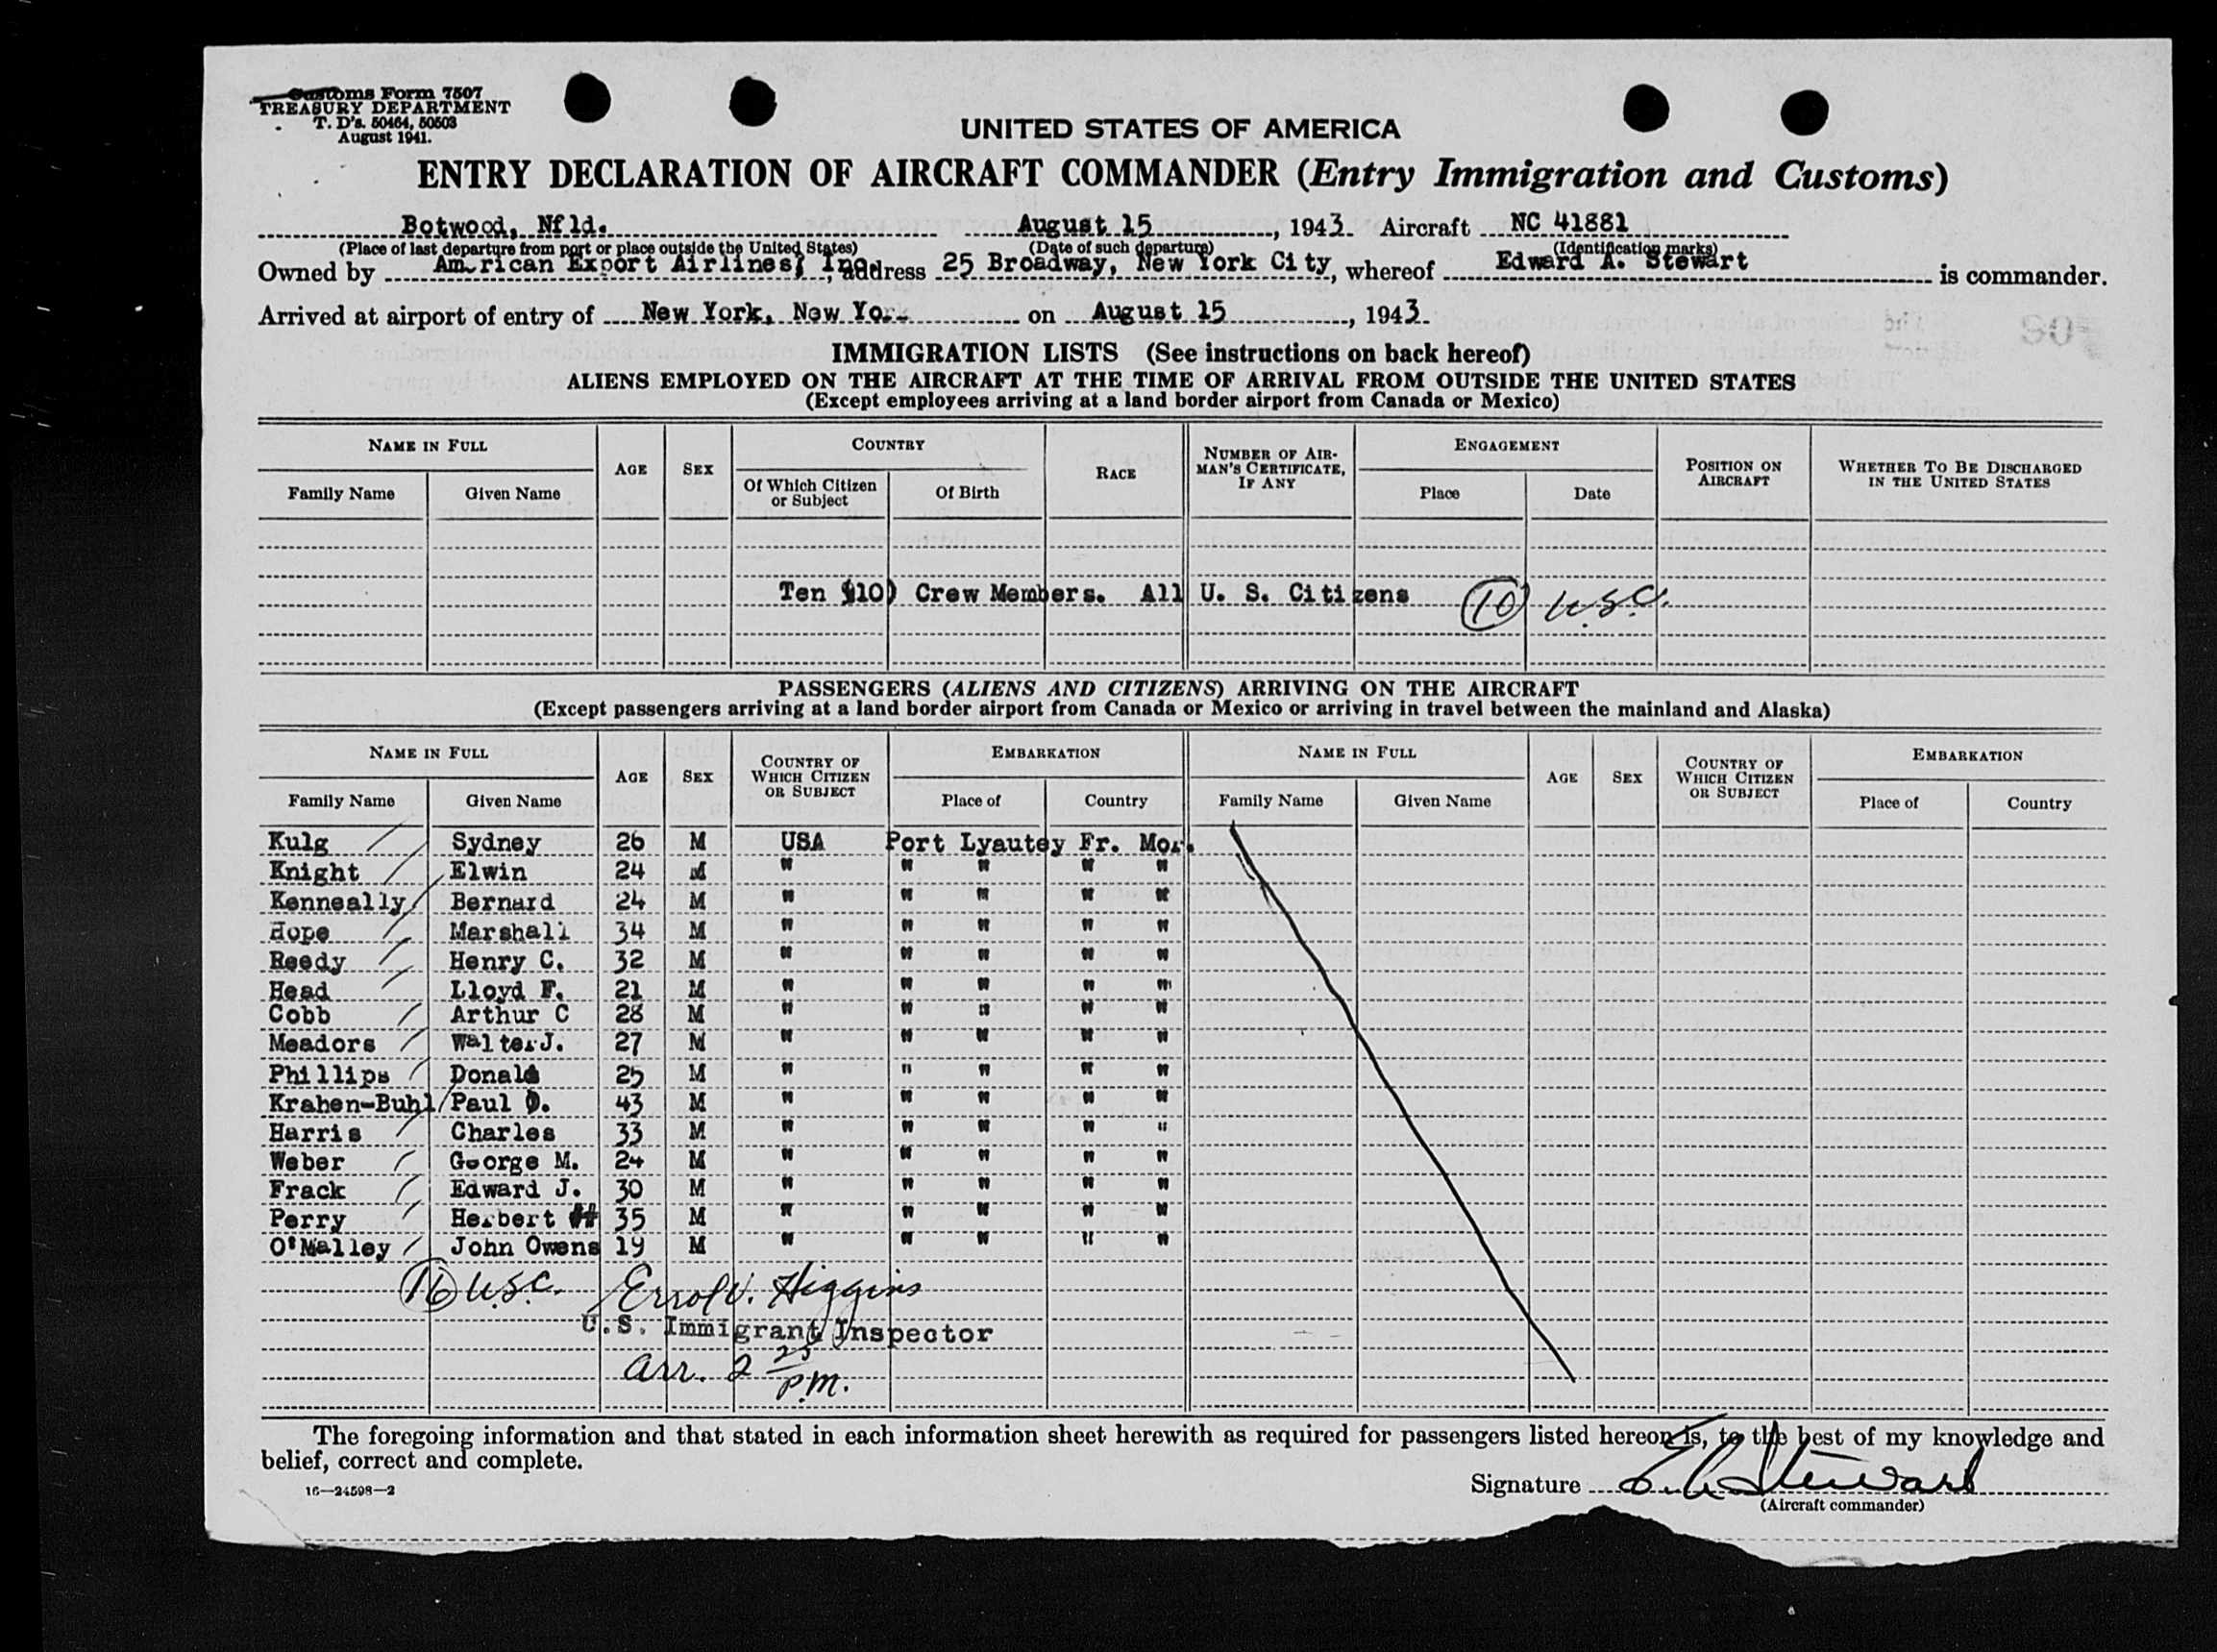 Customs Form 7507
TREASURY DEPARTMENT
T. D's. 50464, 50503
August 1941.
UNITED STATES OF AMERICA
ENTRY DECLARATION OF AIRCRAFT COMMANDER (Entry Immigration and Customs)
Botwood, Nfld. August 15, 1943. Aircraft NC 41881
(Place of last departure from port or place outside the United States) (Date of such departure) (Identification marks)
Owned by American Export Airlines, Inc., address 25 Broadway, New York City, whereof Edward A. Stewart is commander.
Arrived at airport of entry of New York, New Yo on August 15, 1943.
IMMIGRATION LISTS (See instructions on back hereof)
ALIENS EMPLOYED ON THE AIRCRAFT AT THE TIME OF ARRIVAL FROM OUTSIDE THE UNITED STATES
(Except employees arriving at a land border airport from Canada or Mexico)
NAME IN FULL AGE SEX COUNTRY RACE NUMBER OF AIRMAN'S CERTIFICATE, IF ANY ENGAGEMENT POSITION ON AIRCRAFT WHETHER TO BE DISCHARGED IN THE UNITED STATES
Family Name Given Name Of Which Citizen or Subject Of Birth Place Date
Ten (10) Crew Members. All U. S. Citizens (10) U.S.C.
PASSENGERS (ALIENS AND CITIZENS) ARRIVING ON THE AIRCRAFT
(Except passengers arriving at a land border airport from Canada or Mexico or arriving in travel between the mainland and Alaska)
NAME IN FULL AGE SEX COUNTRY OF WHICH CITIZEN OR SUBJECT EMBARKATION NAME IN FULL AGE SEX COUNTRY OF WHICH CITIZEN OR SUBJECT EMBARKATION
Family Name Given Name Place of Country Family Name Given Name Place of Country
Kulg Sydney 26 M USA Port Lyautey Fr. Mor.
Knight Elwin 24 M " " " " "
Kenneally Bernard 24 M " " " " "
Hope Marshall 34 M " " " " "
Reedy Henry C. 32 M " " " " "
Head Lloyd F. 21 M " " " " "
Cobb Arthur C 28 M " " " " "
Meadors Walter J. 27 M " " " " "
Phillips Donald 25 M " " " " "
Krahen-Buhl Paul D. 43 M " " " " "
Harris Charles 33 M " " " " "
Weber George M. 24 M " " " " "
Frack Edward J. 30 M " " " " "
Perry Herbert 35 M " " " " "
O'Malley John Owens 19 M " " " " "
(16) U.S.C. Errol V. Higgins
U.S. Immigrant Inspector
arr. 2 25 P.M.
The foregoing information and that stated in each information sheet herewith as required for passengers listed hereon is, to the best of my knowledge and
belief, correct and complete.
Signature E. A. Stewart
16—24598—2
(Aircraft commander)